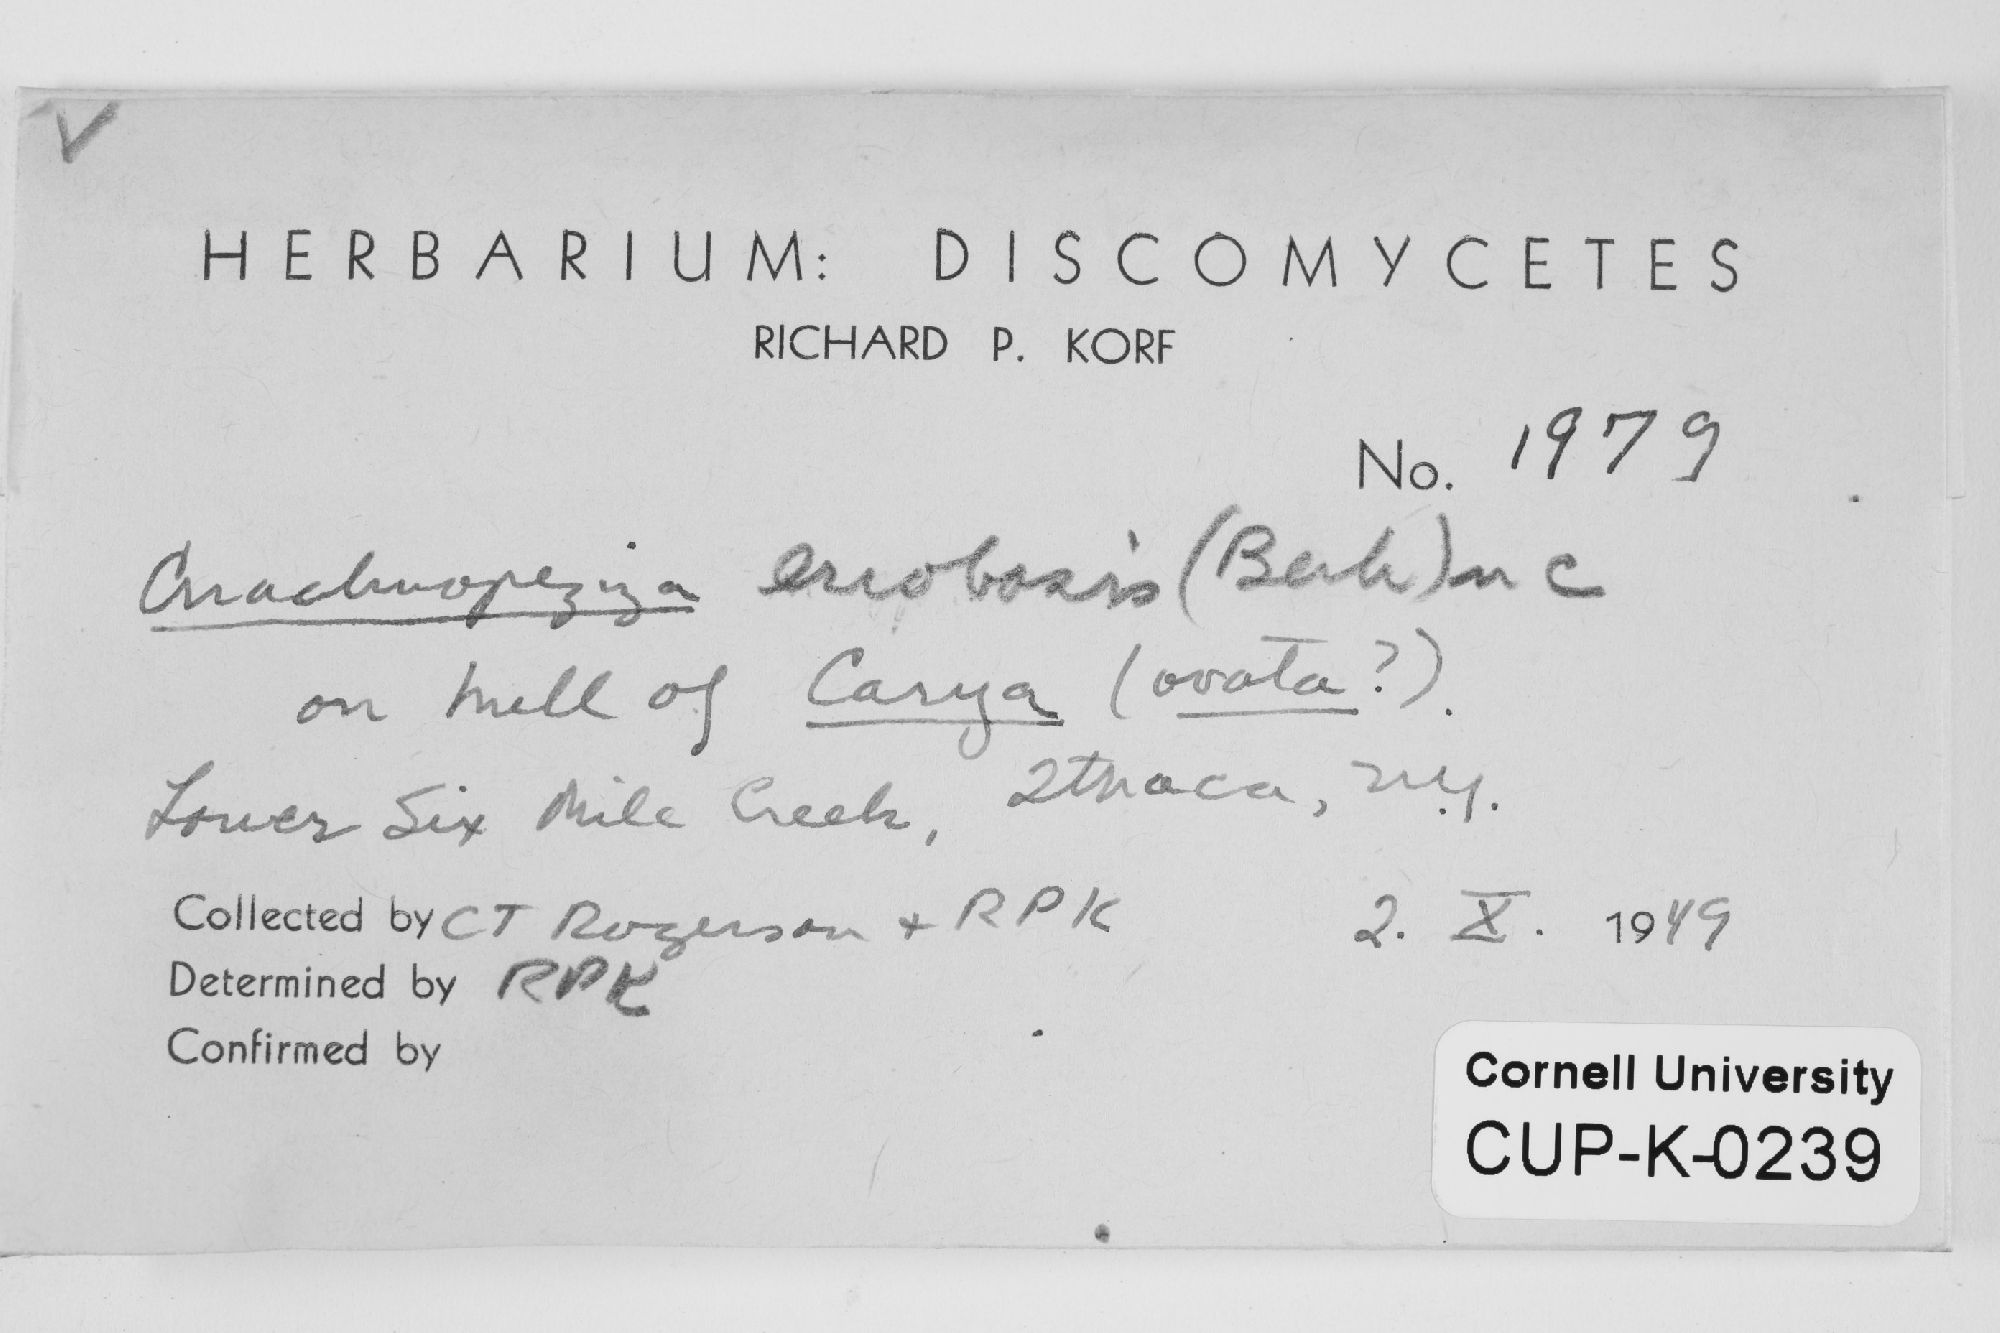 HERBARIUM: DISCOMYCETES
RICHARD P. KORF
No. 1979
Arachnopeziza eriobasis (Berk) n c
on hull of Carya (ovata?).
Lower Six Mile Creek, Ithaca, N.Y.
Collected by CT Rogerson + RPK 2. X. 1949
Determined by RPK
Confirmed by
Cornell University
CUP-K-0239